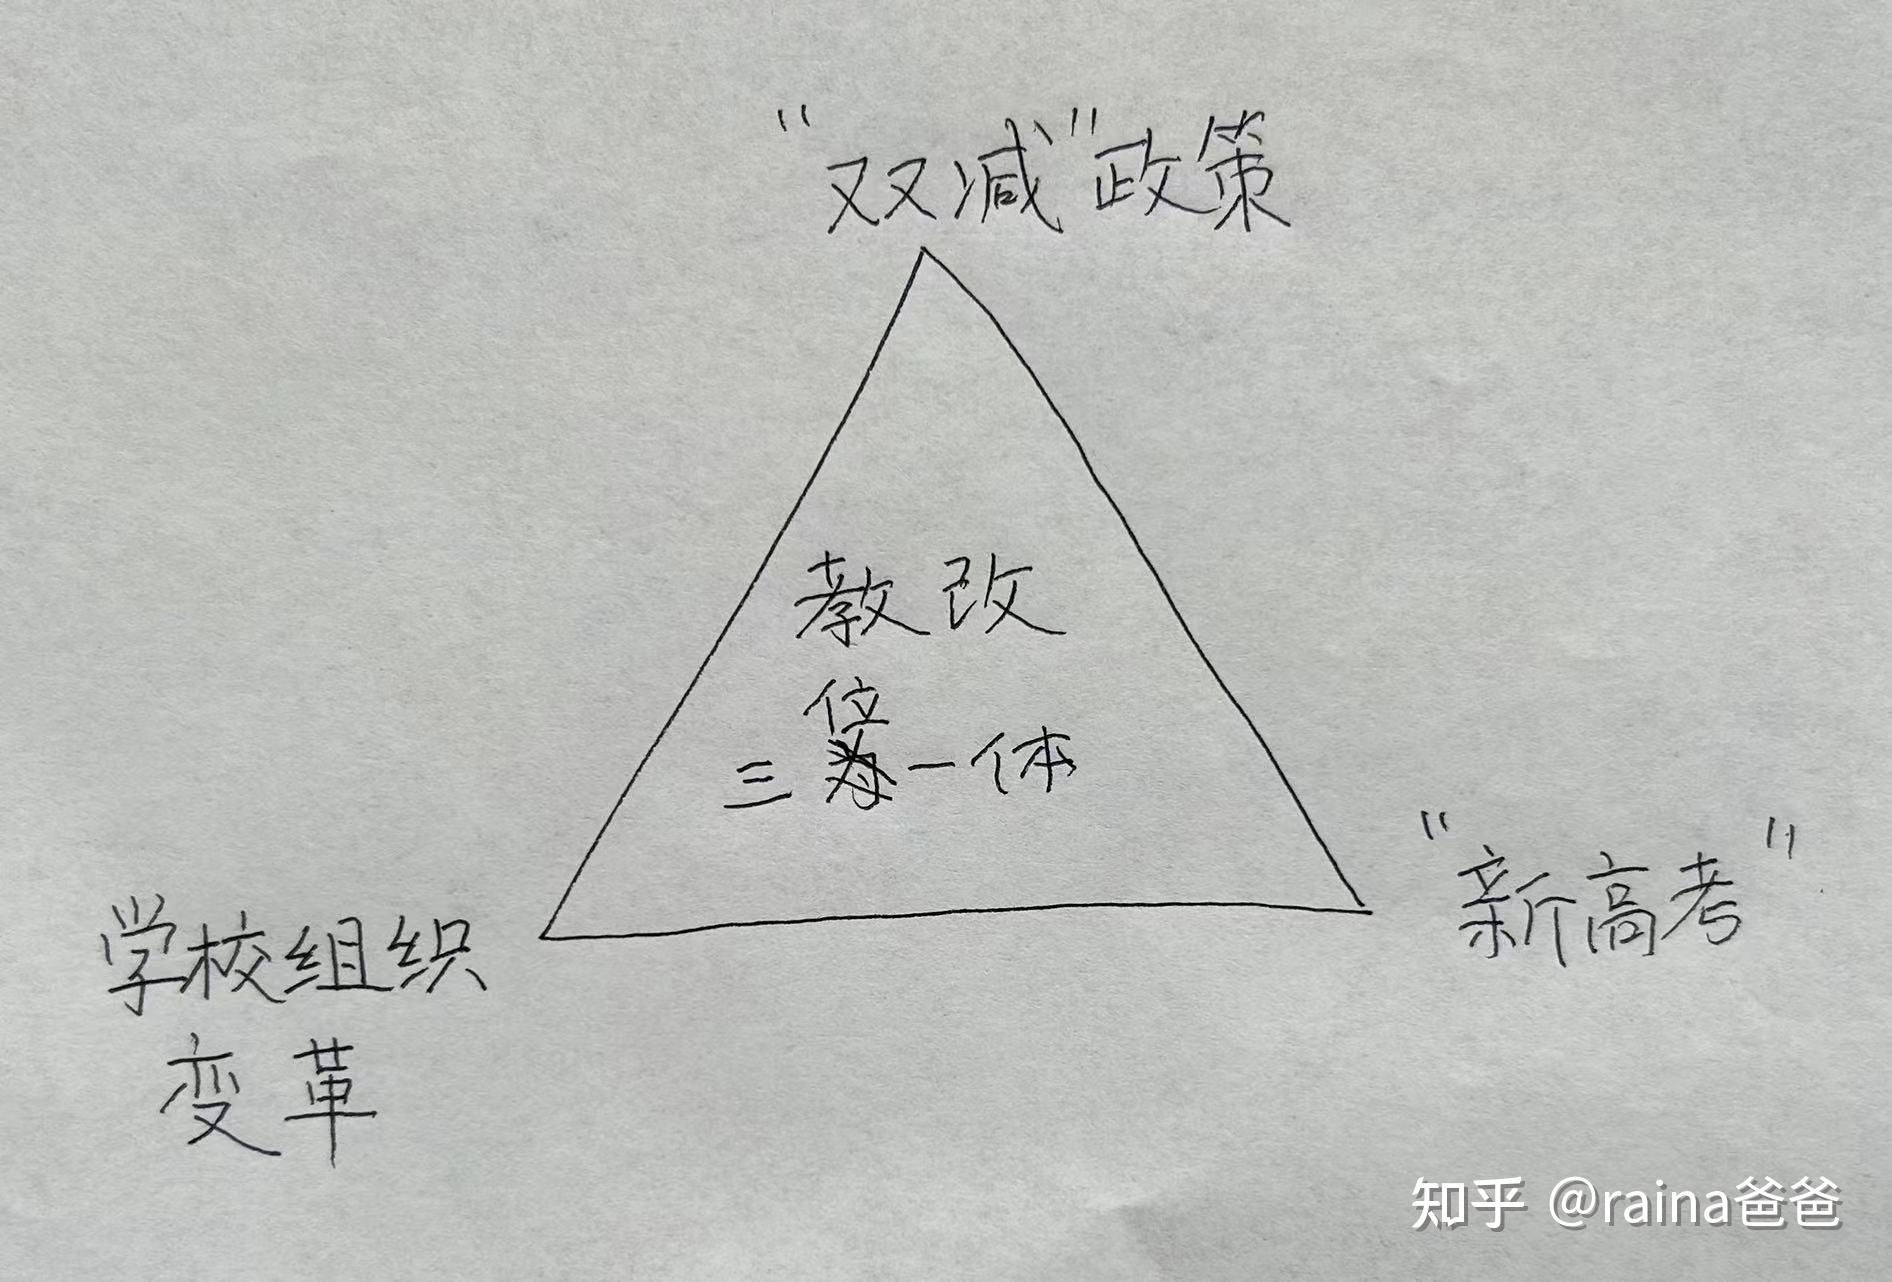 "双减"政策
教改
三位一体
"新高考"
学校组织
变革
知乎 @raina爸爸